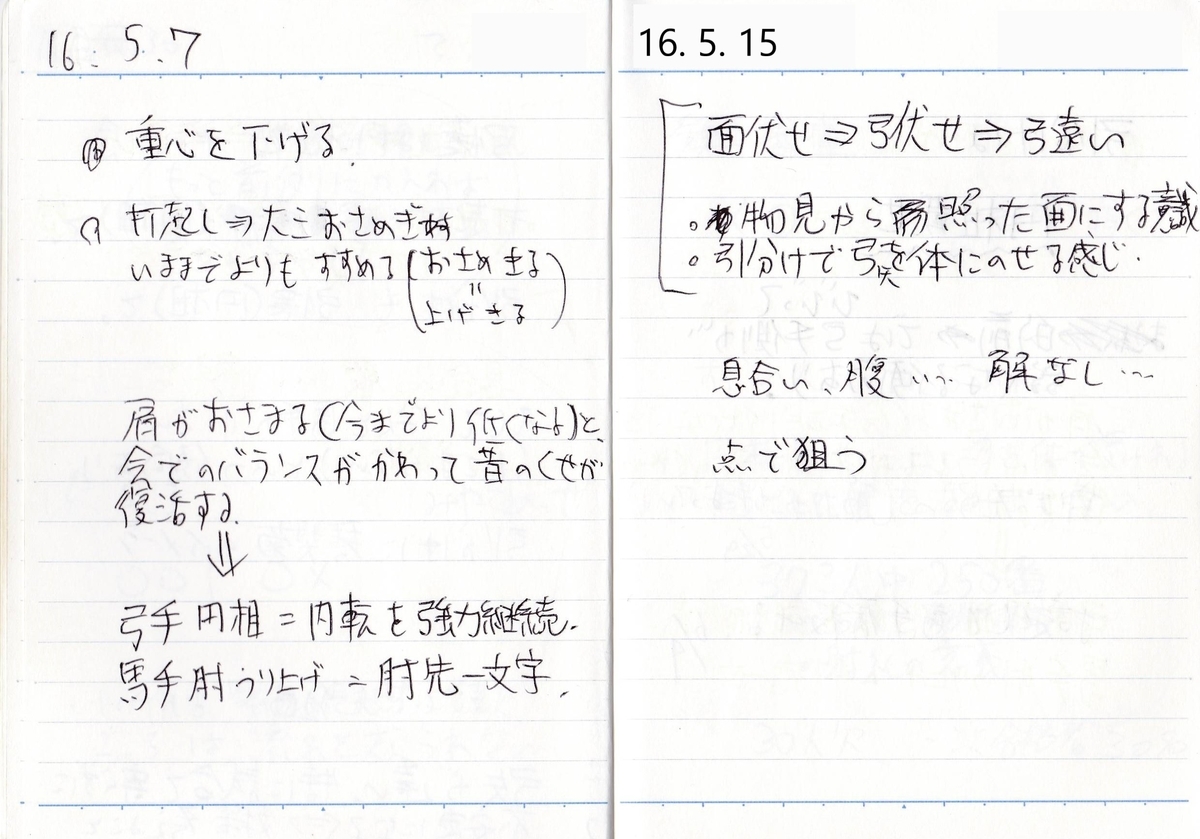 16. 5. 7
重心を下げる.
打起し⇒大三おさめぎ
いままでよりもすすめる(おさめきる
=
上げきる)
肩がおさまる(今までより低くなる)と、
今でのバランスがかわって昔のくせが
復活する.
⇓
弓手円相=内転を強力継続.
馬手肘つり上げ=肘先一文字.
16. 5. 15
面伏せ⇒弓伏せ⇒弓遠い
。物見から照った面にする意識
。引分けで弓矢を体にのせる感じ.
息合い、腹…. 解なし…
点で狙う